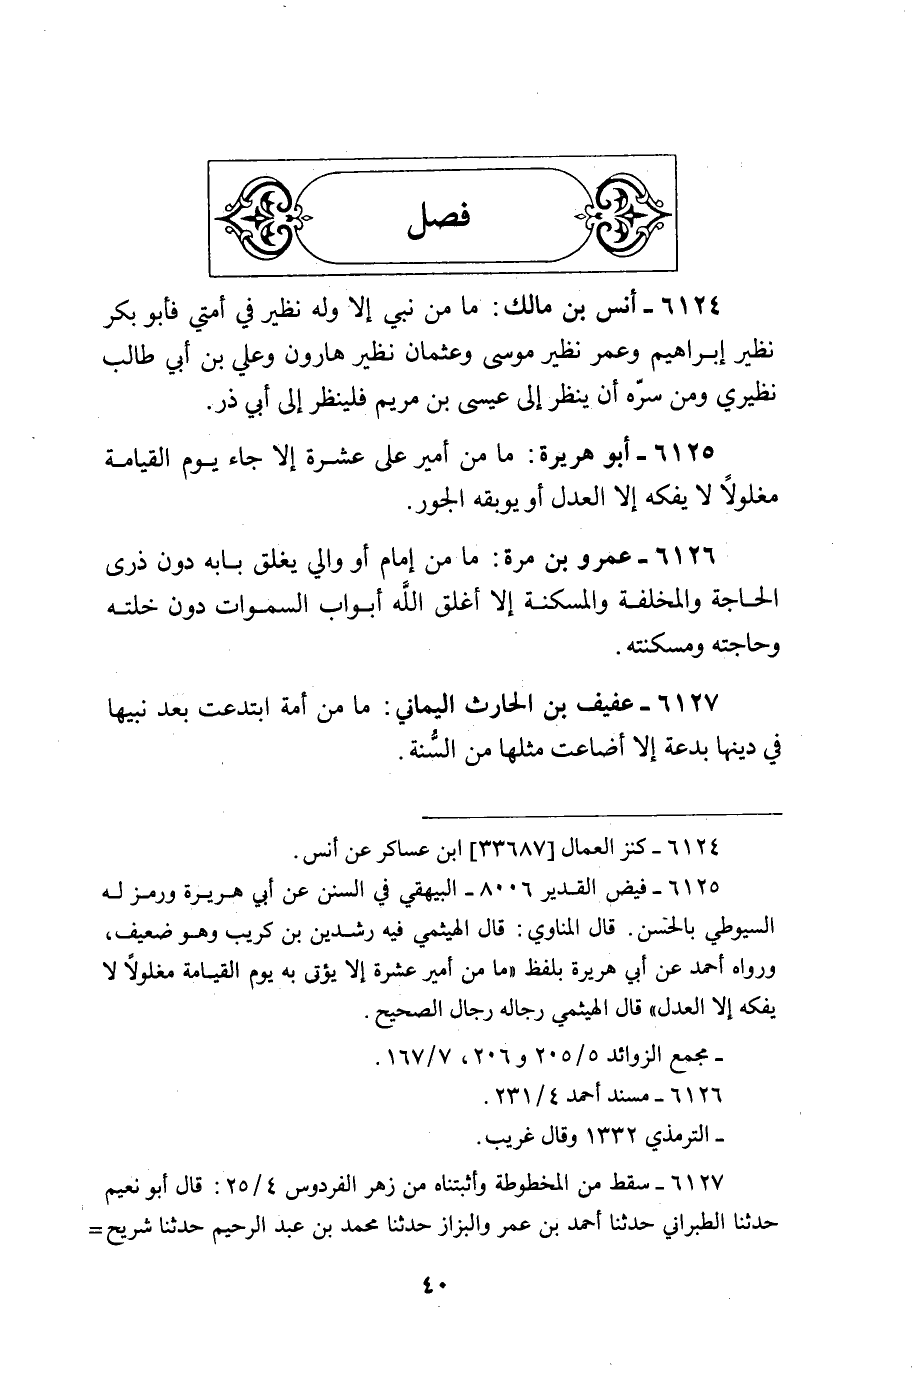 فصل
٦١٢٤ ـ أنس بن مالك: ما من نبي إلا وله نظير في أمتي فأبو بكر
نظير إبراهيم وعمر نظير موسى وعثمان نظير هارون وعلي بن أبي طالب
نظيري ومن سرّه أن ينظر إلى عيسى بن مريم فلينظر إلى أبي ذر.
٦١٢٥ ـ أبو هريرة: ما من أمير على عشرة إلا جاء يوم القيامة
مغلولاً لا يفكه إلا العدل أو يوبقه الجور.
٦١٢٦ ـ عمرو بن مرة: ما من إمام أو والي يغلق بابه دون ذرى
الحاجة والمخلفة والمسكنة إلا أغلق اللَّه أبواب السموات دون خلته
وحاجته ومسكنته.
٦١٢٧ ـ عفيف بن الحارث اليماني: ما من أمة ابتدعت بعد نبيها
في دينها بدعة إلا أضاعت مثلها من السُّنة.
٦١٢٤ ـ كنز العمال [٣٣٦٨٧] ابن عساكر عن أنس.
٦١٢٥ ـ فيض القدير ٨٠٠٦ ـ البيهقي في السنن عن أبي هريرة ورمز له
السيوطي بالحَسن. قال المناوي: قال الهيثمي فيه رشدين بن كريب وهو ضعيف،
ورواه أحمد عن أبي هريرة بلفظ «ما من أمير عشرة إلا يؤتى به يوم القيامة مغلولاً لا
يفكه إلا العدل» قال الهيثمي رجاله رجال الصحيح.
ـ مجمع الزوائد ٢٠٥/٥ و ٢٠٦، ١٦٧/٧.
٦١٢٦ ـ مسند أحمد ٢٣١/٤.
ـ الترمذي ١٣٣٢ وقال غريب.
٦١٢٧ ـ سقط من المخطوطة وأثبتناه من زهر الفردوس ٢٥/٤: قال أبو نعيم
حدثنا الطبراني حدثنا أحمد بن عمر والبزاز حدثنا محمد بن عبد الرحيم حدثنا شريح =
٤٠